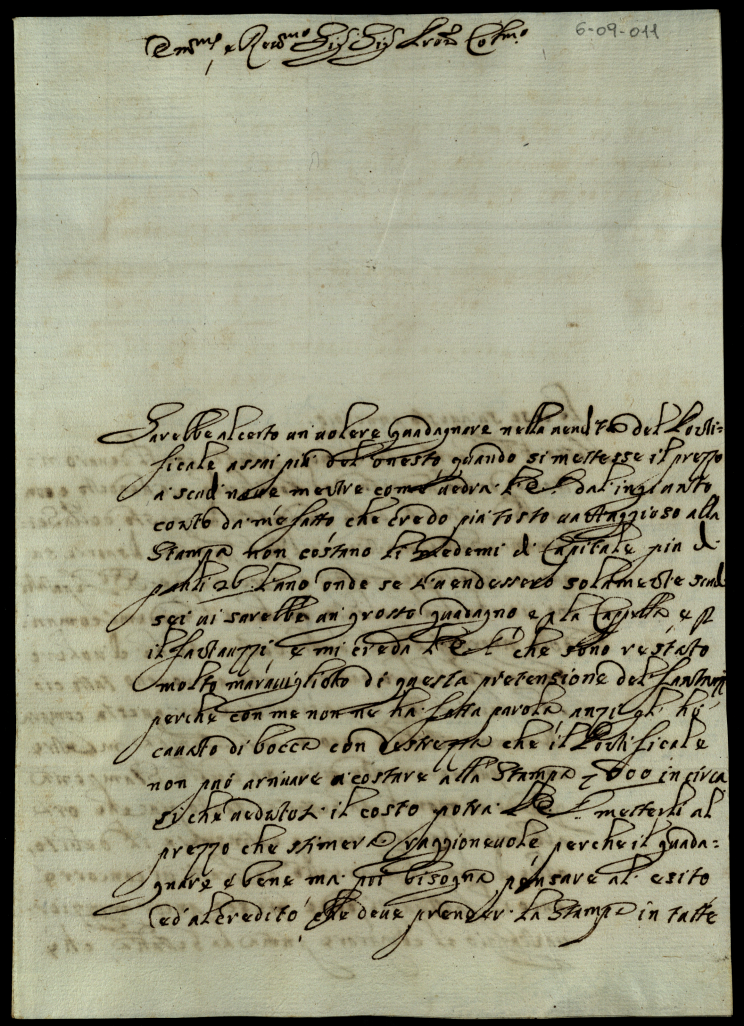 6-09-011
Em.mo e Rev.mo Sig.r Sig.r Pron Col.mo
Sarebbe al certo un volere guadagnare nella vendita del Ponti=
ficale assai più del onesto quando si mettesse il prezzo
a scudi nove mentre come vedrà V. E. dal ingiunto
conto da me fatto che credo più tosto vantaggioso alla
Stampa non costano li medemi di Capitale più di
pauli 26 l'uno onde se si vendessero solamente scudi
sei vi sarebbe un grosso guadagno e p la Cappella e p
il fantauzzi e mi creda V. E. che sono restato
molto maraviglioto di questa pretensione del fantauzzi
perche con me non ne ha fatta parola anzi gli ho
cavato di bocca con destrezza che il Pontificale
non può arrivare a costare alla Stampa 600 in circa
si che veduto il costo potrà V. E. metterli al
prezzo che stimerà raggionevole perche il guada=
gnare è bene ma poi bisogna pensare al esito
ed al credito che deve prender la Stampa in tutte